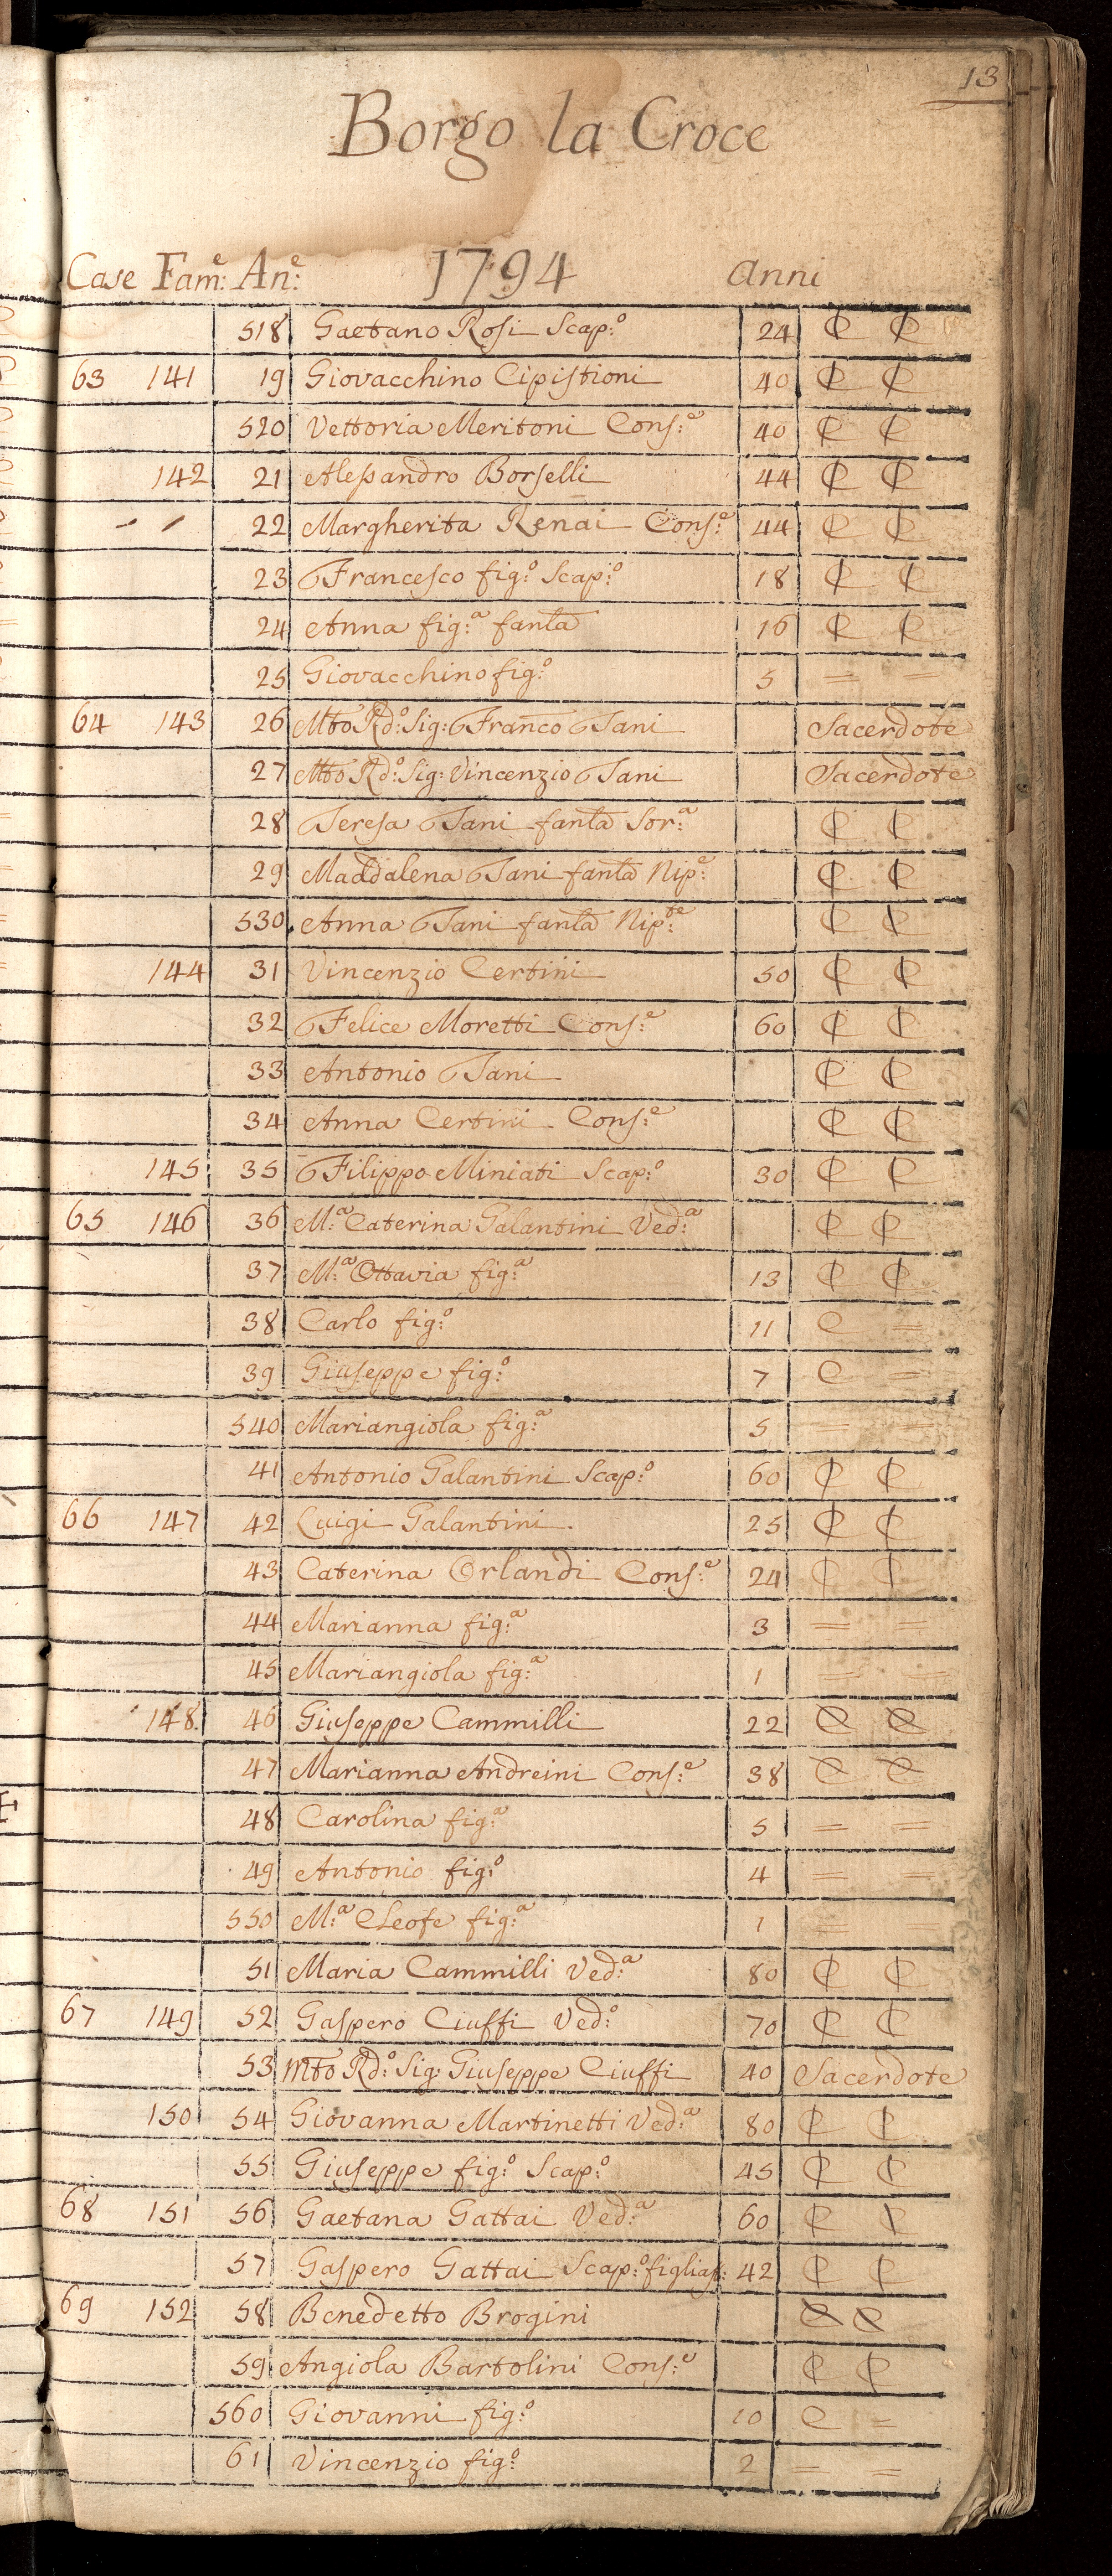 13
Borgo la Croce
Case Fam:e An:e 1794 Anni
518 Gaetano Rosi Scap:o 24 C C
63 141 19 Giovacchino Cipistioni 40 C C
520 Vettoria Meritoni Cons:e 40 C C
142 21 Alessandro Borselli 44 C C
22 Margherita Renai Cons:e 44 C C
23 Francesco fig:o Scap:o 18 C C
24 Anna fig:a fanla 16 C C
25 Giovacchino fig:o 5 = =
64 143 26 Mto Rd:o Sig: Franco Tani Sacerdote
27 Mto Rd:o Sig: Vincenzio Tani Sacerdote
28 Teresa Tani fanla Sor:a C C
29 Maddalena Tani fanla Nip:e C C
530 Anna Tani fanla Nip:te C C
144 31 Vincenzio Certini 50 C C
32 Felice Moretti Cons:e 60 C C
33 Antonio Tani C C
34 Anna Certini Cons:e C C
145 35 Filippo Miniati Scap:o 30 C C
65 146 36 M:a Caterina Galantini Ved:a C C
37 M:a Ottavia fig:a 13 C C
38 Carlo fig:o 11 C =
39 Giuseppe fig:o 7 C =
540 Mariangiola fig:a 5 = =
41 Antonio Galantini Scap:o 60 C C
66 147 42 Luigi Galantini 25 C C
43 Caterina Orlandi Cons:e 24 C C
44 Marianna fig:a 3 = =
45 Mariangiola fig:a 1 = =
148 46 Giuseppe Cammilli 22 C C
47 Marianna Andreini Cons:e 38 C C
48 Carolina fig:a 5 = =
49 Antonio fig:o 4 = =
550 M:a Cleofe fig:a 1 =
51 Maria Cammilli Ved:a 80 C C
67 149 52 Gaspero Ciuffi Ved:o 70 C C
53 Mto Rd:o Sig: Giuseppe Ciuffi 40 Sacerdote
150 54 Giovanna Martinetti Ved:a 80 C C
55 Giuseppe fig:o Scap:o 45 C C
68 151 56 Gaetana Gattai Ved:a 60 C C
57 Gaspero Gattai Scap:o figlias: 42 C C
69 152 58 Benedetto Brogini C C
59 Angiola Bartolini Cons:e C C
560 Giovanni fig:o 10 C =
61 Vincenzio fig:o 2 = =